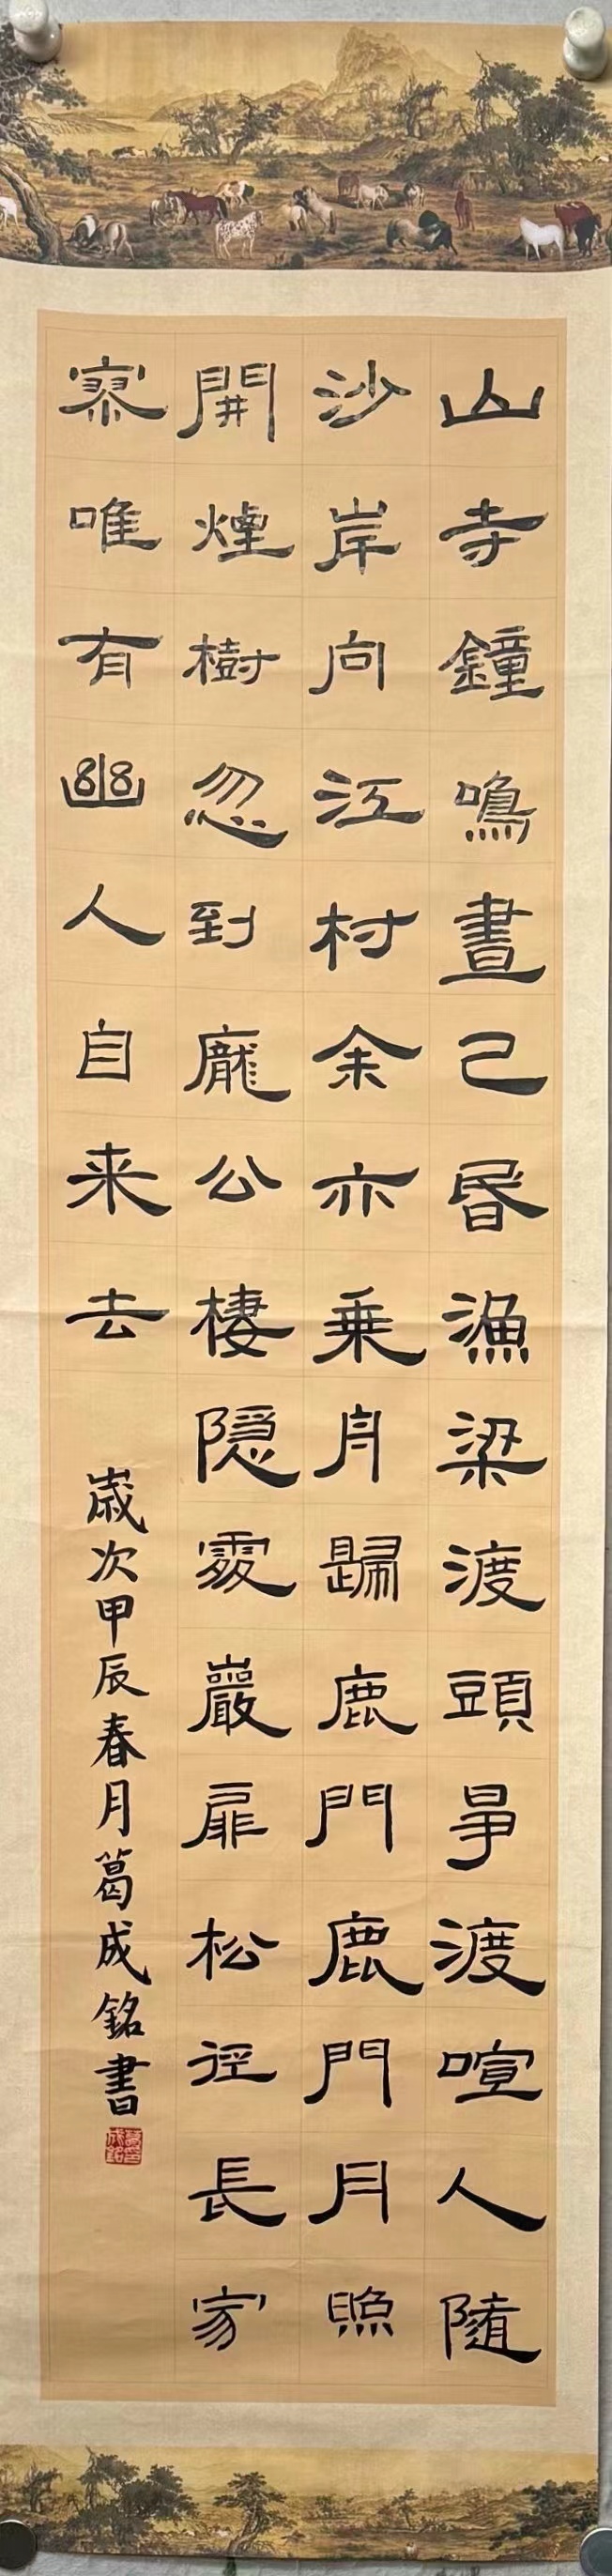 山寺鐘鳴晝已昏漁梁渡頭爭渡喧人隨
沙岸向江村余亦乗月歸鹿門鹿門月照
開煙樹忽到龐公棲隱處巖扉松徑長寂
寥唯有幽人自来去
歲次甲辰春月葛成銘書